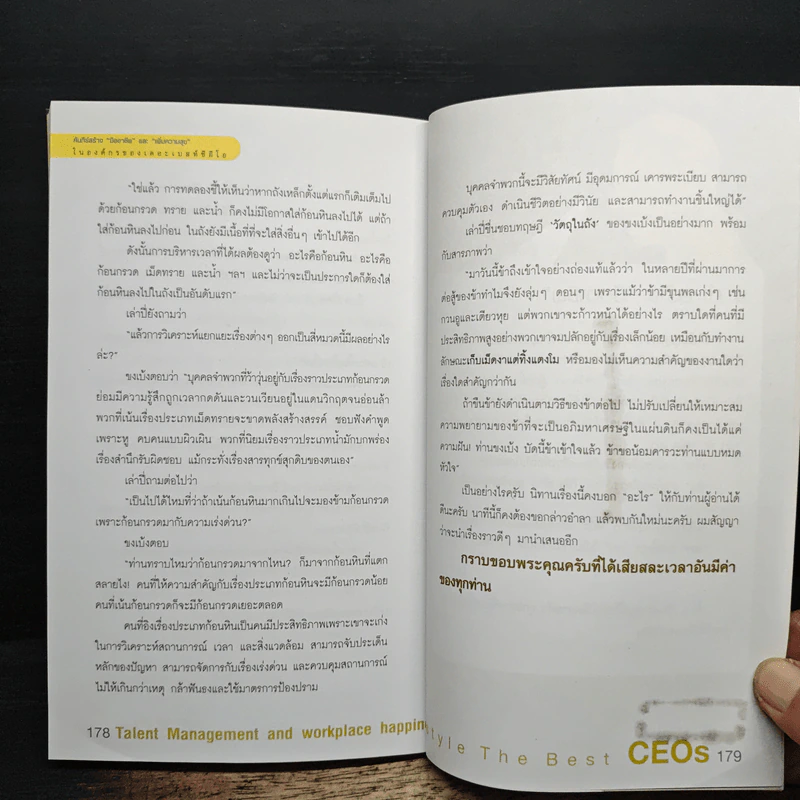 คัมภีร์สร้าง "มืออาชีพ" และ "เพิ่มความสุข"
ในองค์กรของเดอะเบสท์ซีอีโอ
"ใช่แล้ว การทดลองชี้ให้เห็นว่าหากถังเหล็กตั้งแต่แรกก็เติมเต็มไป
ด้วยก้อนกรวด ทราย และน้ำ ก็คงไม่มีโอกาสใส่ก้อนหินลงไปได้ แต่ถ้า
ใส่ก้อนหินลงไปก่อน ในถังยังมีเนื้อที่ที่จะใส่สิ่งอื่นๆ เข้าไปได้อีก
ดังนั้นการบริหารเวลาที่ได้ผลต้องดูว่า อะไรคือก้อนหิน อะไรคือ
ก้อนกรวด เม็ดทราย และน้ำ ฯลฯ และไม่ว่าจะเป็นประการใดก็ต้องใส่
ก้อนหินลงไปในถังเป็นอันดับแรก"
เล่าปี่ยังถามว่า
"แล้วการวิเคราะห์แยกแยะเรื่องต่างๆ ออกเป็นสี่หมวดนี้มีผลอย่างไร
ล่ะ?"
ขงเบ้งตอบว่า "บุคคลจำพวกที่ว้าวุ่นอยู่กับเรื่องราวประเภทก้อนกรวด
ย่อมมีความรู้สึกถูกเวลากดดันและวนเวียนอยู่ในแดนวิกฤตจนอ่อนล้า
พวกที่เน้นเรื่องประเภทเม็ดทรายจะขาดพลังสร้างสรรค์ ชอบฟังคำพูด
เพราะหู คบคนแบบผิวเผิน พวกที่นิยมเรื่องราวประเภทน้ำมักบกพร่อง
เรื่องสำนึกรับผิดชอบ แม้กระทั่งเรื่องสารทุกข์สุกดิบของตนเอง"
เล่าปี่ถามต่อไปว่า
"เป็นไปได้ไหมที่ว่าถ้าเน้นก้อนหินมากเกินไปจะมองข้ามก้อนกรวด
เพราะก้อนกรวดมากับความเร่งด่วน?"
ขงเบ้งตอบ
"ท่านทราบไหมว่าก้อนกรวดมาจากไหน? ก็มาจากก้อนหินที่แตก
สลายไง! คนที่ให้ความสำคัญกับเรื่องประเภทก้อนหินจะมีก้อนกรวดน้อย
คนที่เน้นก้อนกรวดก็จะมีก้อนกรวดเยอะตลอด
คนที่อิงเรื่องประเภทก้อนหินเป็นคนมีประสิทธิภาพเพราะเขาจะเก่ง
ในการวิเคราะห์สถานการณ์ เวลา และสิ่งแวดล้อม สามารถจับประเด็น
หลักของปัญหา สามารถจัดการกับเรื่องเร่งด่วน และควบคุมสถานการณ์
ไม่ให้เกินกว่าเหตุ กล้าฟันธงและใช้มาตรการป้องปราม
178 Talent Management and workplace happin
บุคคลจำพวกนี้จะมีวิสัยทัศน์ มีอุดมการณ์ เคารพระเบียบ สามารถ
ควบคุมตัวเอง ดำเนินชีวิตอย่างมีวินัย และสามารถทำงานชิ้นใหญ่ได้"
เล่าปี่ชื่นชอบทฤษฎี 'วัตถุในถัง' ของขงเบ้งเป็นอย่างมาก พร้อม
กับสารภาพว่า
"มาวันนี้ข้าถึงเข้าใจอย่างถ่องแท้แล้วว่า ในหลายปีที่ผ่านมาการ
ต่อสู้ของข้าทำไมจึงยังลุ่มๆ ดอนๆ เพราะแม้ว่าข้ามีขุนพลเก่งๆ เช่น
กวนอูและเตียวหุย แต่พวกเขาจะก้าวหน้าได้อย่างไร ตราบใดที่คนที่มี
ประสิทธิภาพสูงอย่างพวกเขาจมปลักอยู่กับเรื่องเล็กน้อย เหมือนกับทำงาน
ลักษณะเก็บเม็ดงาแต่ทิ้งแตงโม หรือมองไม่เห็นความสำคัญของงานใดว่า
เรื่องใดสำคัญกว่ากัน
ถ้าขืนข้ายังดำเนินตามวิธีของข้าต่อไป ไม่ปรับเปลี่ยนให้เหมาะสม
ความพยายามของข้าที่จะเป็นอภิมหาเศรษฐีในแผ่นดินก็คงเป็นได้แค่
ความฝัน! ท่านขงเบ้ง บัดนี้ข้าเข้าใจแล้ว ข้าขอน้อมคารวะท่านแบบหมด
หัวใจ"
เป็นอย่างไรครับ นิทานเรื่องนี้คงบอก "อะไร" ให้กับท่านผู้อ่านได้
ดีนะครับ นาทีนี้ก็คงต้องขอกล่าวอำลา แล้วพบกันใหม่นะครับ ผมสัญญา
ว่าจะนำเรื่องราวดีๆ มานำเสนออีก
กราบขอบพระคุณครับที่ได้เสียสละเวลาอันมีค่า
ของทุกท่าน
tyle The Best CEOs 179